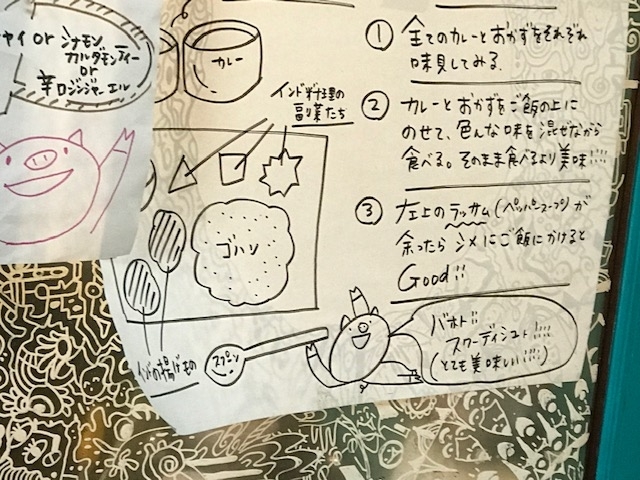 ャイ or シナモン
カルダモンティー
or
辛口ジンジャーエル
カレー
インド料理の
副菜たち
ゴハン
インドの揚げもの
スプーン
① 全てのカレーとおかずをそれぞれ
味見してみる.
② カレーとおかずをご飯の上に
のせて、色んな味を混ぜながら
食べる。そのまま食べるより美味!!!!
③ 左上のラッサム(ペッパースープ)が
余ったらシメにご飯にかけると
Good!!
バホト!!
スワーディシュト!!!!
(とても美味しい!!!!)